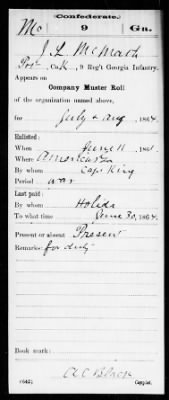 Confederate.
Mc 9 Ga.
J. L. McMath
Pvt, Co. K, 9 Reg't Georgia Infantry.
Appears on
Company Muster Roll
of the organization named above,
for July & Aug, 1864.
Enlisted:
When June 11, 1861.
Where Americus Ga
By whom Capt King
Period war
Last paid:
By whom
To what time June 30, 1864.
Present or absent Present
Remarks: for duty
Book mark:
(642)
Copyist.